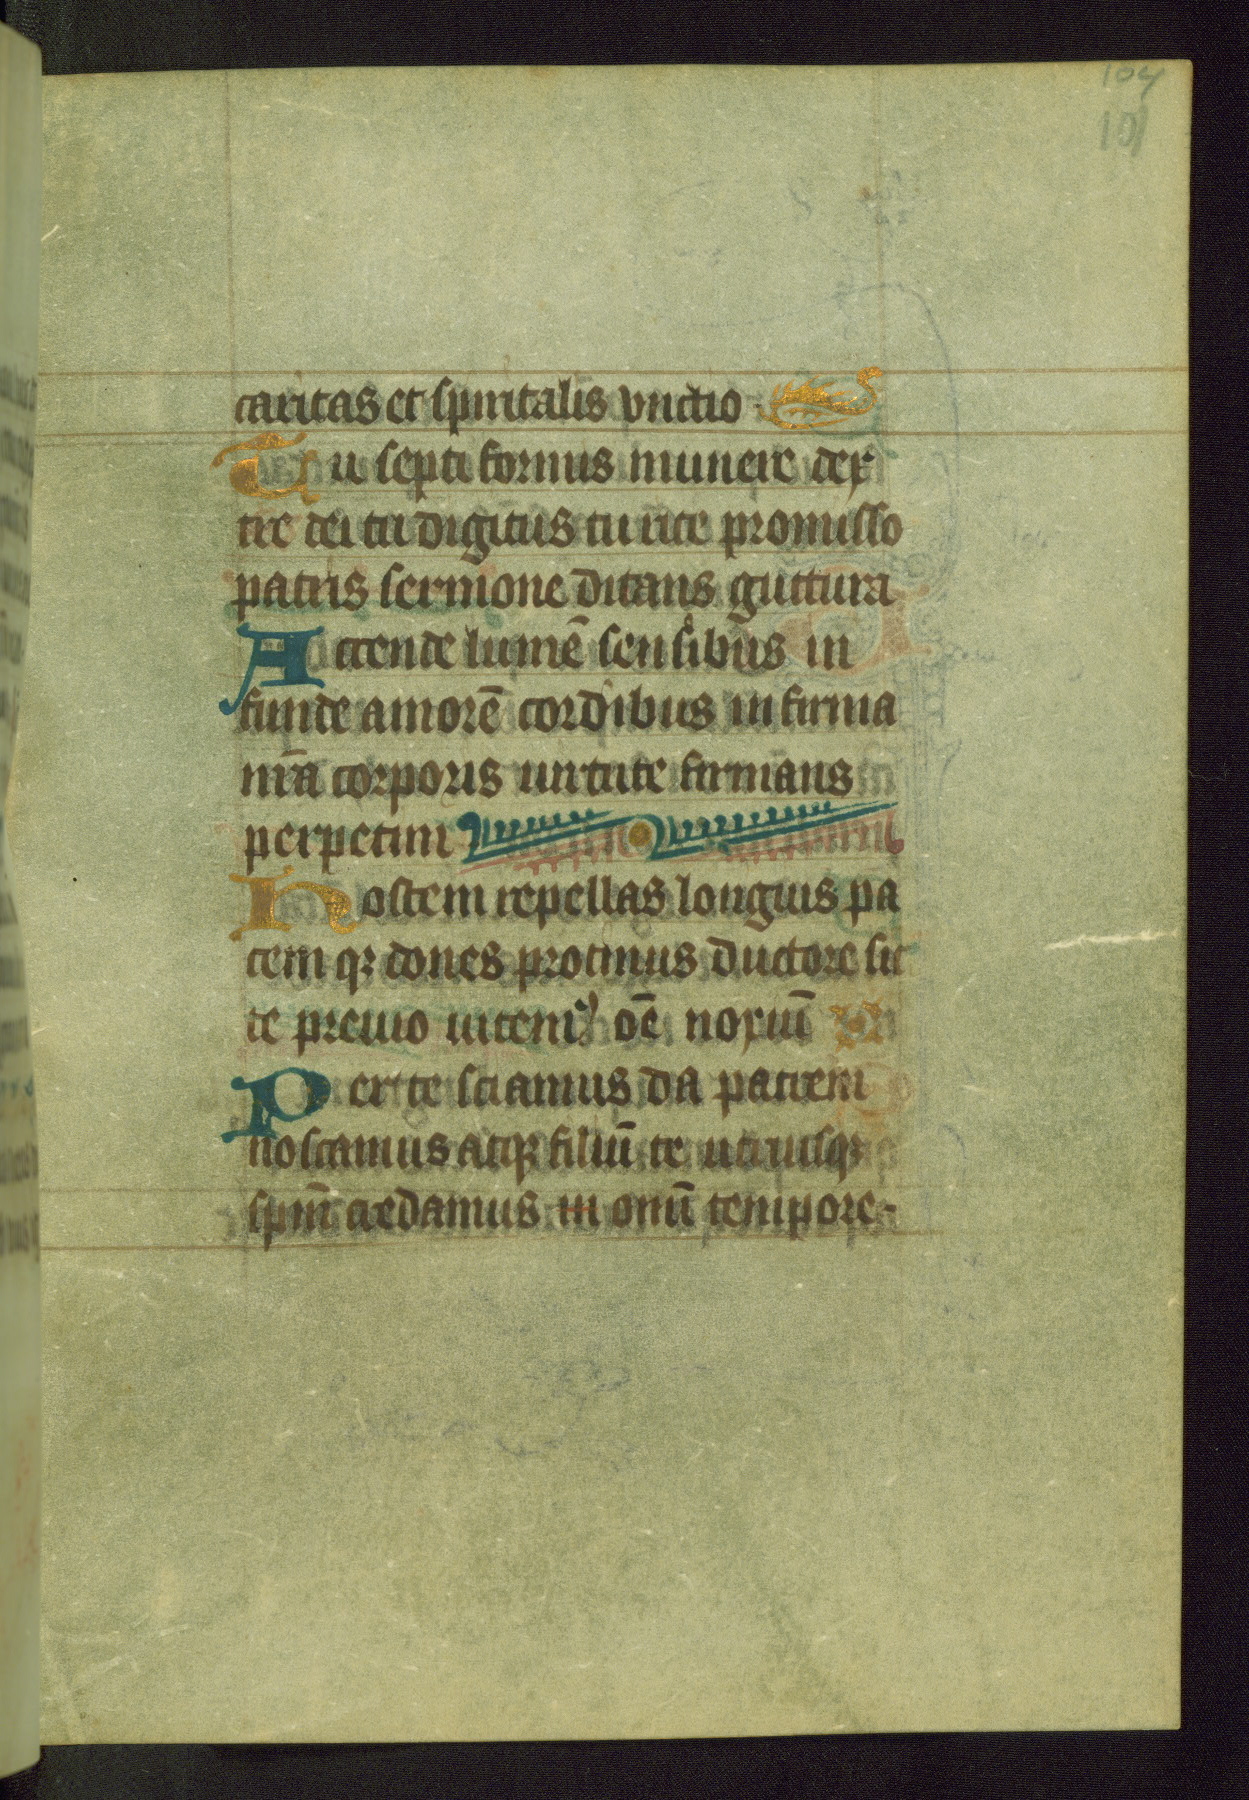 104
101
caritas et spiritalis vnctio
Tu septiformus munere dex
tre dei tu digitus tu rite promisso
patris sermone ditans guttura
Accende lumē sensibus in
funde amorē cordibus infirma
nr̄a corporis uirtute firmans
perpetim
Hostem repellas longuis pa
cem qꝫ dones protinus ductore sic
te preuio uitem᷒ oē noxiū
Per te sciamus da patrem
noscamus atqꝫ filiū te utriusqꝫ
spm̄ credamus in omī tempore